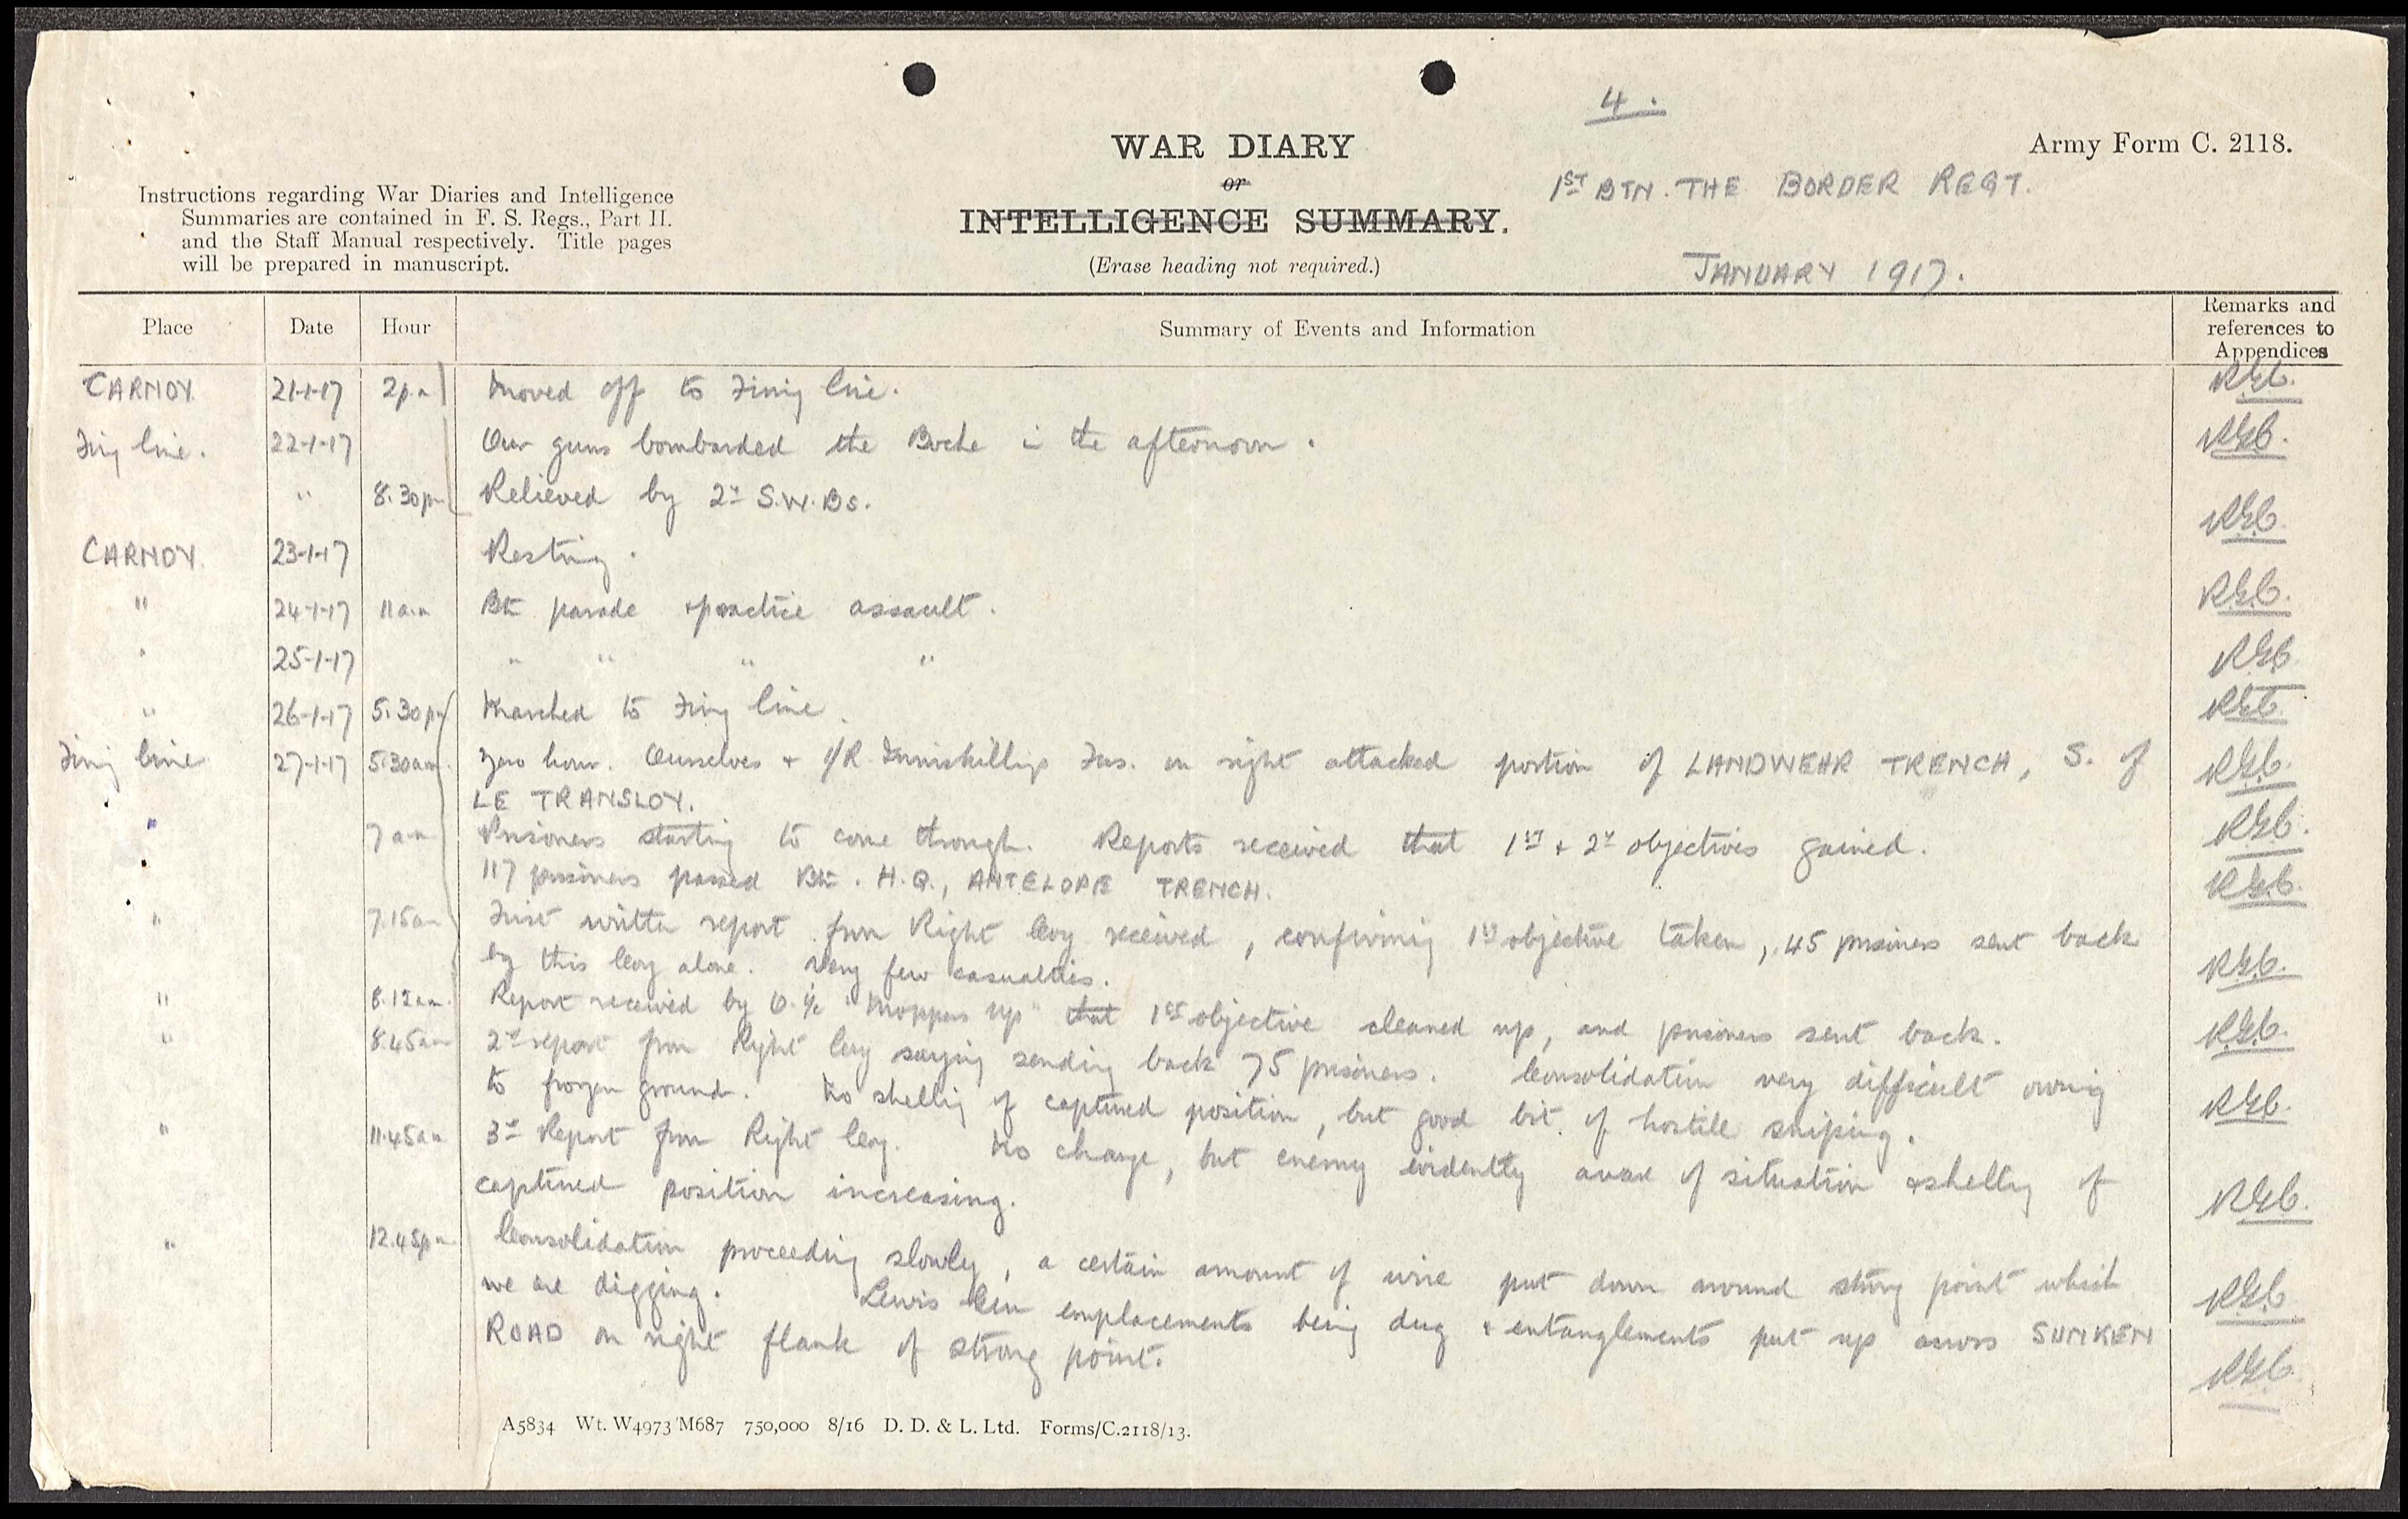 4.
WAR DIARY
Army Form C. 2118.
or
1ST BTN. THE BORDER REGT.
INTELLIGENCE SUMMARY.
(Erase heading not required.)
JANUARY 1917.
Instructions regarding War Diaries and Intelligence
Summaries are contained in F. S. Regs., Part II.
and the Staff Manual respectively. Title pages
will be prepared in manuscript.
Place Date Hour Summary of Events and Information Remarks and
references to
Appendices
CARNOY 21-1-17 2pm Moved off to Firing line. R.G.C.
Firing line. 22-1-17 Our guns bombarded the Boche in the afternoon. R.G.C.
" 8.30pm Relieved by 2nd S.W.Bs. R.G.C.
CARNOY 23-1-17 Resting. R.G.C.
" 24-1-17 11am Btn parade & practice assault. R.G.C.
" 25-1-17 " " " " R.G.C.
" 26-1-17 5.30pm Marched to Firing line. R.G.C.
Firing line 27-1-17 5.30am. Zero hour. Ourselves & 1/R. Inniskilling Fus. on right attacked portion of LANDWEHR TRENCH, S. of R.G.C.
LE TRANSLOY.
" 7am Prisoners starting to come through. Reports received that 1st & 2nd objectives gained. R.G.C.
117 prisoners passed Btn. H.Q., ANTELOPE TRENCH. R.G.C.
" 7.15am First written report from Right Coy received, confirming 1st objective taken, 45 prisoners sent back
by this Coy alone. Very few casualties. R.G.C.
" 8.15am. Report received by O. i/c "Moppers up" that 1st objective cleaned up, and prisoners sent back. R.G.C.
" 8.45am 2nd report from Right Coy saying sending back 75 prisoners. Consolidation very difficult owing
to frozen ground. No shelling of captured position, but good bit of hostile sniping. R.G.C.
" 11.45am 3rd Report from Right Coy. No change, but enemy evidently aware of situation & shelling of
captured position increasing. R.G.C.
" 12.45pm Consolidation proceeding slowly, a certain amount of wire put down around strong point which
we are digging. Lewis Gun emplacements being dug & entanglements put up across SUNKEN R.G.C.
ROAD on right flank of strong point. R.G.C.
A5834 Wt. W4973/M687 750,000 8/16 D. D. & L. Ltd. Forms/C.2118/13.